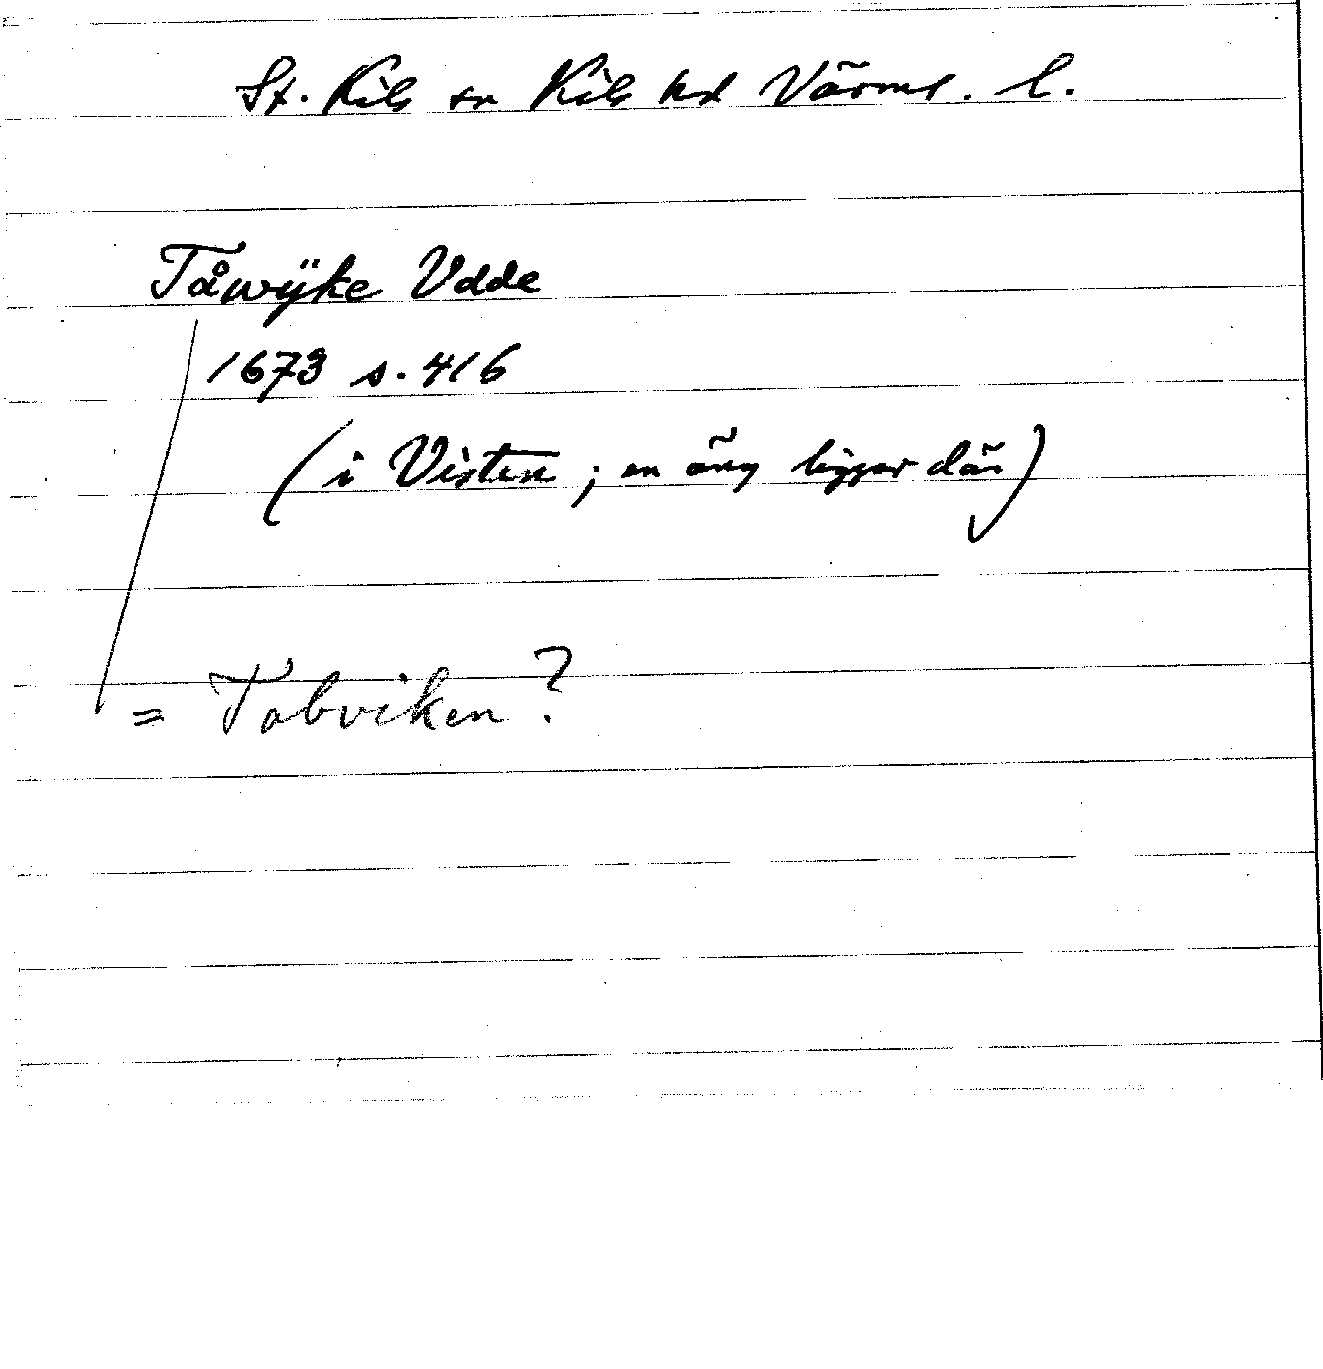 St. Kils sn Kils hd Värml. l.
Tåwÿke Vdde
1673 s. 416
(i Visten; en äng ligger där)
= Tobviken?